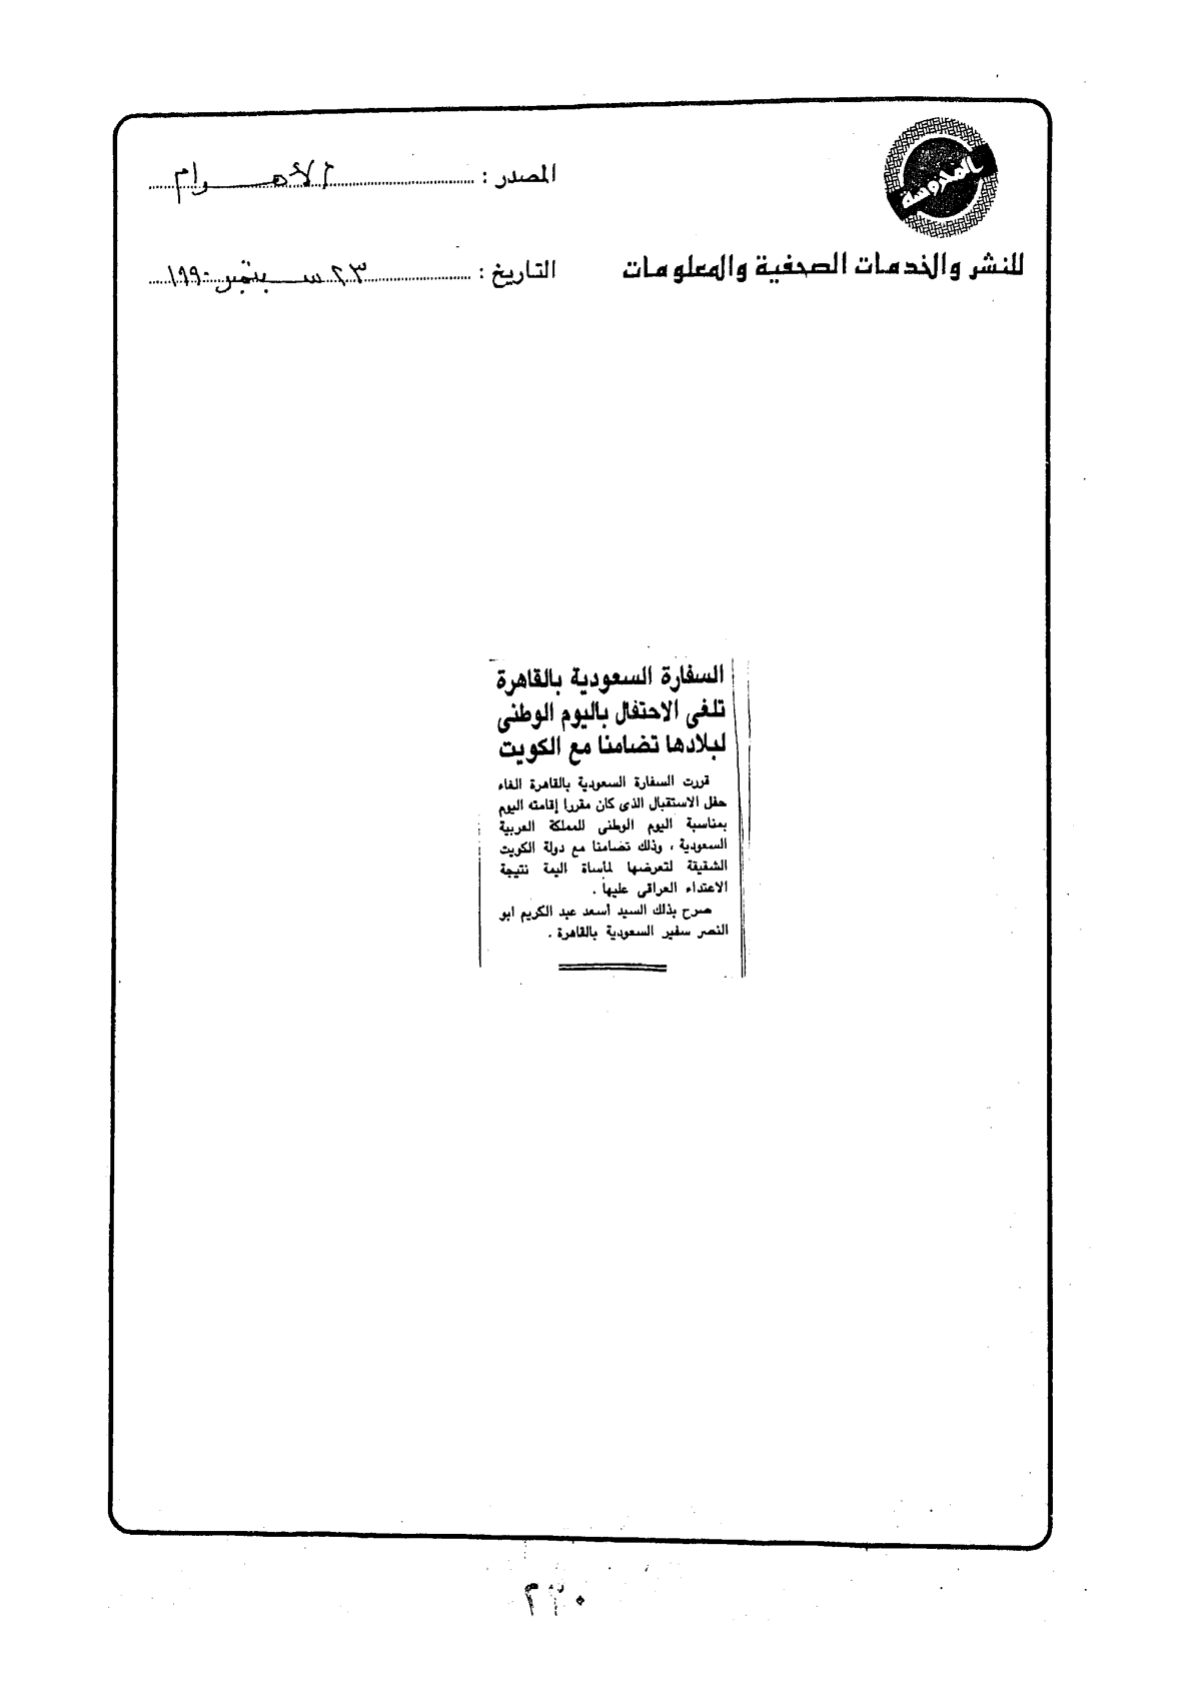 المحروسة
للنشر والخدمات الصحفية والمعلومات
المصدر : الأهرام
التاريخ : ٢٣ سبتمبر ١٩٩٠
السفارة السعودية بالقاهرة
تلغى الاحتفال باليوم الوطنى
لبلادها تضامنا مع الكويت
قررت السفارة السعودية بالقاهرة الغاء
حفل الاستقبال الذى كان مقررا إقامته اليوم
بمناسبة اليوم الوطنى للمملكة العربية
السعودية ، وذلك تضامنا مع دولة الكويت
الشقيقة لتعرضها لمأساة اليمة نتيجة
الاعتداء العراقى عليها .
صرح بذلك السيد أسعد عبد الكريم ابو
النصر سفير السعودية بالقاهرة .